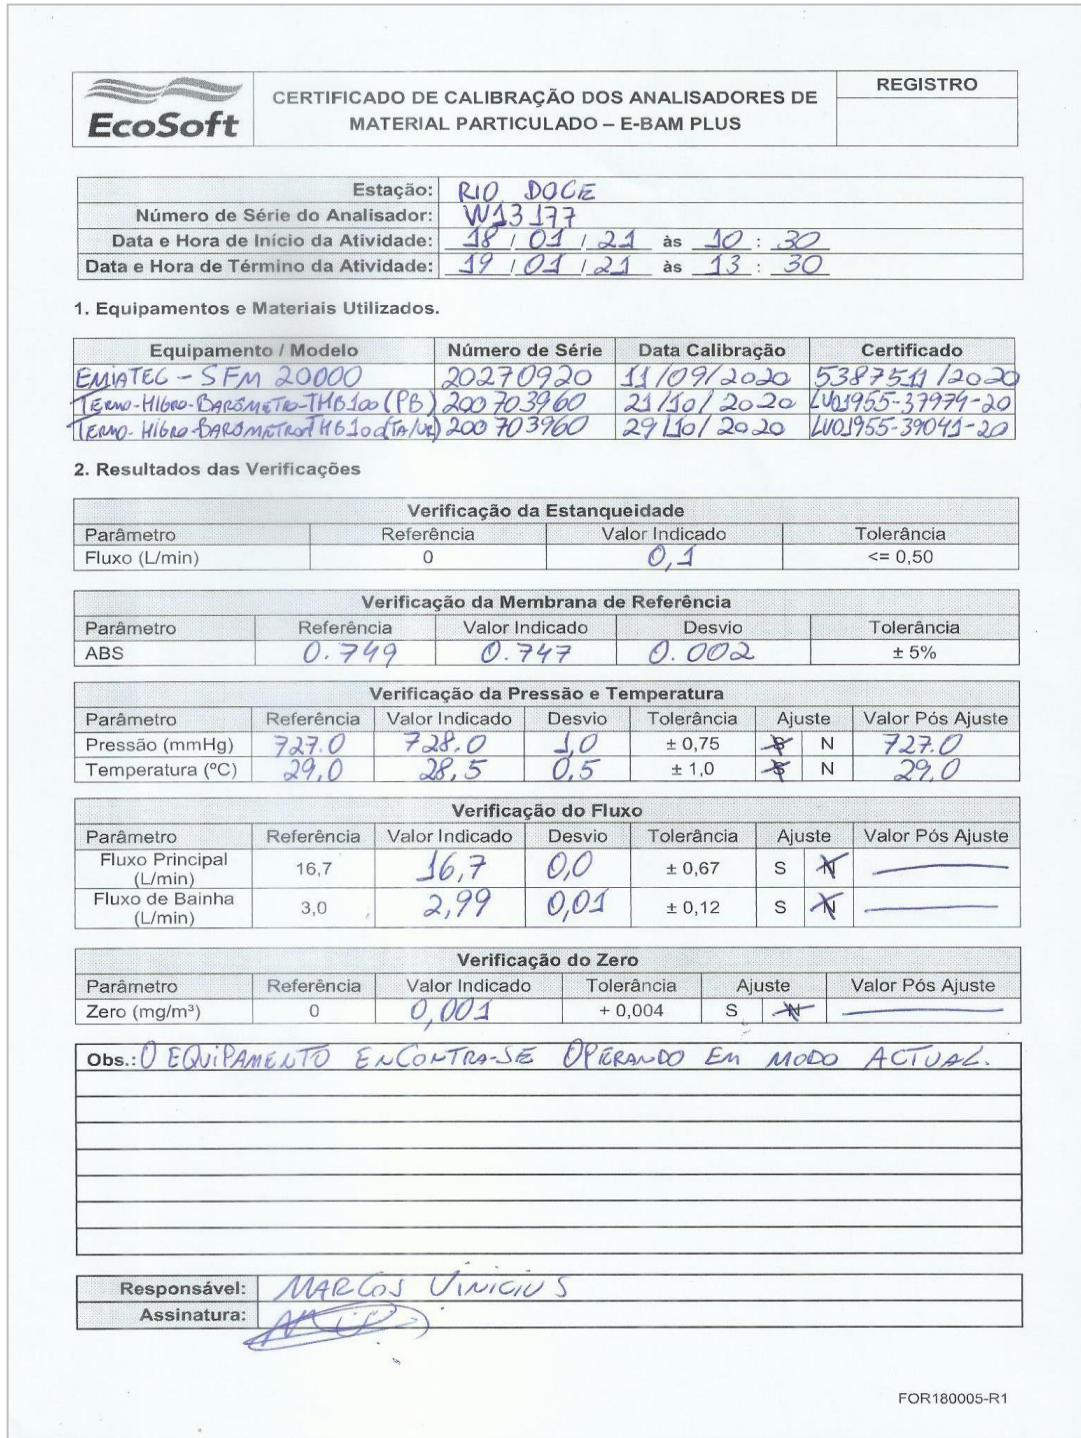 EcoSoft
CERTIFICADO DE CALIBRAÇÃO DOS ANALISADORES DE
MATERIAL PARTICULADO – E-BAM PLUS
REGISTRO
Estação: RIO DOCE
Número de Série do Analisador: W13177
Data e Hora de Início da Atividade: 18 / 01 / 21 às 10 : 30
Data e Hora de Término da Atividade: 19 / 01 / 21 às 13 : 30
1. Equipamentos e Materiais Utilizados.
Equipamento / Modelo Número de Série Data Calibração Certificado
EMIATEC - SFM 20000 20270920 11/09/2020 5387511/2020
TERMO-HIGRO-BARÔMETRO-THB100 (PB) 200703960 21/10/2020 LV01955-37974-20
TERMO-HIGRO-BAROMETRO THB100 (TA/UR) 200703960 29/10/2020 LV01955-39041-20
2. Resultados das Verificações
Verificação da Estanqueidade
Parâmetro Referência Valor Indicado Tolerância
Fluxo (L/min) 0 0,1 <= 0,50
Verificação da Membrana de Referência
Parâmetro Referência Valor Indicado Desvio Tolerância
ABS 0.749 0.747 0.002 ± 5%
Verificação da Pressão e Temperatura
Parâmetro Referência Valor Indicado Desvio Tolerância Ajuste Valor Pós Ajuste
Pressão (mmHg) 727.0 728.0 1,0 ± 0,75 S N 727.0
Temperatura (ºC) 29,0 28,5 0,5 ± 1,0 S N 29,0
Verificação do Fluxo
Parâmetro Referência Valor Indicado Desvio Tolerância Ajuste Valor Pós Ajuste
Fluxo Principal
(L/min) 16,7 16,7 0,0 ± 0,67 S N
Fluxo de Bainha
(L/min) 3,0 2,99 0,01 ± 0,12 S N
Verificação do Zero
Parâmetro Referência Valor Indicado Tolerância Ajuste Valor Pós Ajuste
Zero (mg/m³) 0 0,001 + 0,004 S N
Obs.: O EQUIPAMENTO ENCONTRA-SE OPERANDO EM MODO ACTUAL.
Responsável: MARCOS VINICIUS
Assinatura:
FOR180005-R1